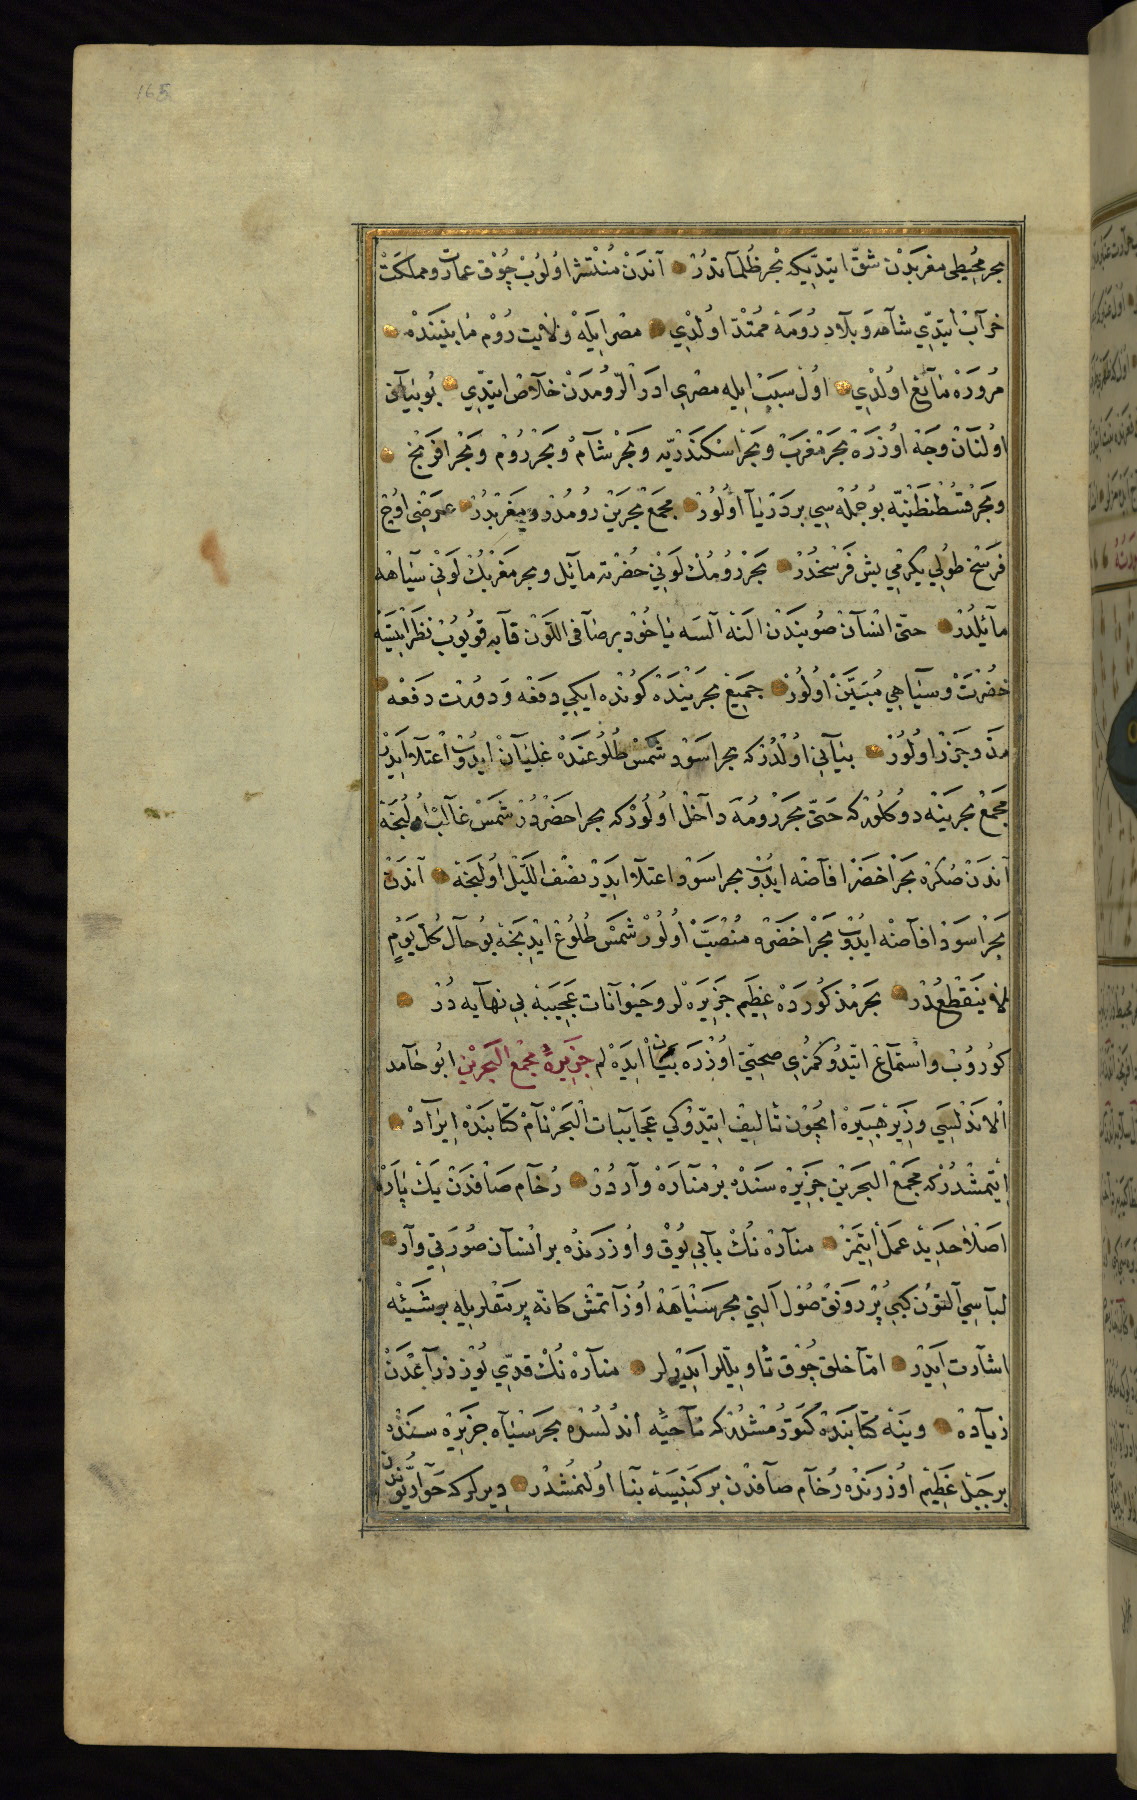 165
بحر محیطی مغربدن شقّ ایتدیکه بحر ظلماتدر آندن منتشر اولوب چوق عمارت و مملکت
خراب ایتدی شامه و بلاد رومه ممتدّ اولدی مصر ایله ولایت روم مابیننده
مروره مانع اولدی اول سبب ایله مصری ادرار الرومدن خلاص ایتدی بو بیان
اولنان وجه اوزره بحر مغرب و بحر اسکندریه و بحر شام و بحر روم و بحر افرنج
و بحر قسطنطنیه بو جمله سی بر دریا اولور مجمع بحرین روم در و مغربدر عرضی اوچ
فرسخ طولی یکرمی بش فرسخدر بحر رومك لونی حضرته مائل و بحر مغربك لونی سیاهه
مائلدر حتّی انسان صویندن النه السه یاخود بر صافی اللون قابه قویوب نظر ایتسه
خضرت و سیاهی مبیّن اولور جمیع بحرینده کونده ایکی دفعه و دورت دفعه
مدّ و جزر اولور بیانی اولدر که بحر اسود شمس طلوعنده غلیان ایدوب اعتلا ایدر
مجمع بحرینه دوکلور که حتّی بحر رومه داخل اولور که بحر اخضردر شمس غالب اولنجه
آندن صکره بحر اخضر افاضه ایدوب بحر اسود اعتلا ایدر نصف اللیل اولنجه آندن
بحر اسود افاضه ایدوب بحر اخضره منصبّ اولور شمس طلوع ایدنجه بو حال کلّ یوم
لا ینقطعدر بحر مذکورده عظیم جزیره لر و حیوانات عجیبه بی نهایه در
کوروب و استماع ایتدوکمزی صحّتی اوزره بیان ایده لم جزیرهٔ مجمع البحرین ابو حامد
الاندلسی وزیر هبیره ایچون تألیف ایتدوکی عجایبات البحر نام کتابنده ایراد
ایتمشدر که مجمع البحرین جزیره سنده بر مناره واردر رخام صافدن یك پاره
اصلا حدید عمل ایتمز مناره نك بابی یوق و اوزرنده بر انسان صورتی وار
لباسی آلتون کبی پر رونق صول الینی بحر سیاهه اوزاتمش کانّه پرمقلریله بر شیئه
اشارت ایدر امّا خلق چوق تاویللر ایدرلر مناره نك قدّی یوز ذراعدن
زیاده وینه کتابنده کتورمشدر که ناحیهٔ اندلسده بحر سیاه جزیره سنده
بر جبل عظیم اوزرنده رخام صافدن بر کنیسه بنا اولنمشدر دیرلر که حواریّوندن